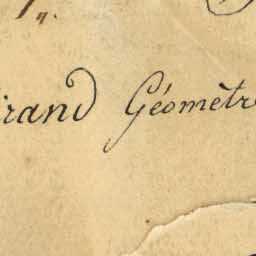 rand Géomètr